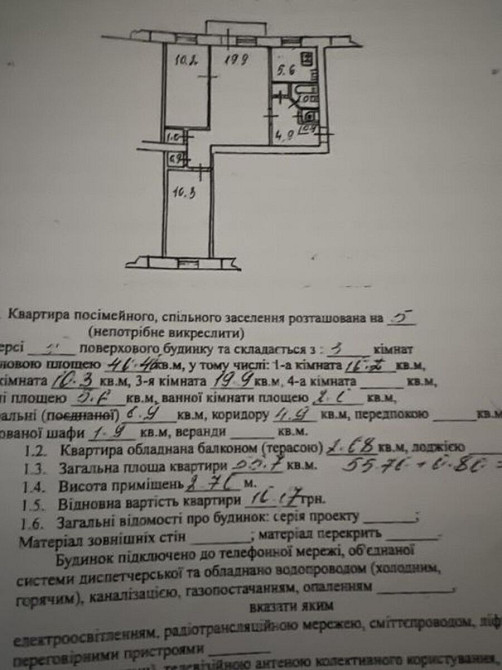 10.2
19.9
5.6
4.9
10.3
. Квартира посімейного, спільного заселення розташована на 5
(непотрібне викреслити)
ерсі поверхового будинку та складається з : 3 кімнат
новою площею 46.4 кв.м, у тому числі: 1-а кімната кв.м,
кімната 10.3 кв.м, 3-я кімната 19.9 кв.м, 4-а кімната кв.м,
ні площею кв.м, ванної кімнати площею кв.м,
альні (поєднаної) 0.9 кв.м, коридору 4.9 кв.м, передпокою кв.м
ованої шафи 1.9 кв.м, веранди кв.м.
1.2. Квартира обладнана балконом (терасою) 2.68 кв.м, лоджією
1.3. Загальна площа квартири кв.м. 55.70 + 0.80 =
1.4. Висота приміщень 2.70 м.
1.5. Відновна вартість квартири грн.
1.6. Загальні відомості про будинок: серія проекту ;
Матеріал зовнішніх стін ; матеріал перекрить .
Будинок підключено до телефонної мережі, об'єднаної
системи диспетчерської та обладнано водопроводом (холодним,
горячим), каналізацією, газопостачанням, опаленням ,
вказати яким
електроосвітленням, радіотрансляційною мережею, сміттєпроводом, ліф
переговірними пристроями
телевізійною антеною колективного користування